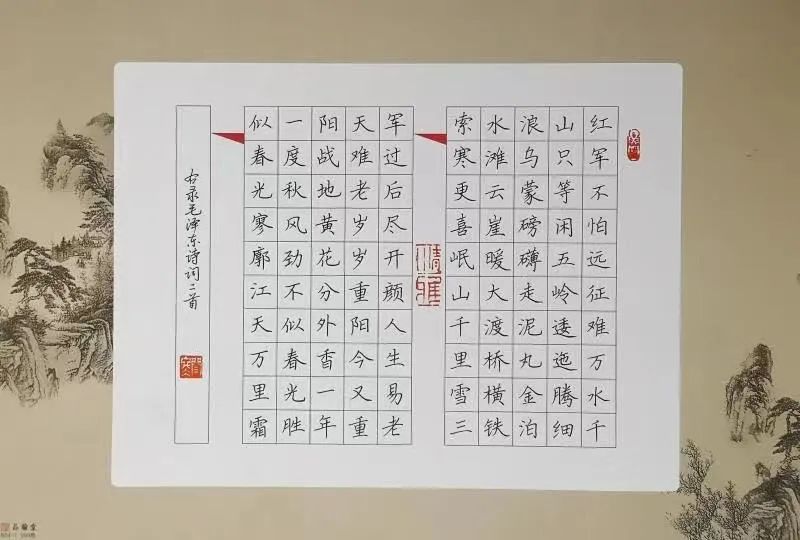 红军不怕远征难万水千
山只等闲五岭逶迤腾细
浪乌蒙磅礴走泥丸金泊
水滩云崖暖大渡桥横铁
索寒更喜岷山千里雪三
清雅
军过后尽开颜人生易老
天难老岁岁重阳今又重
阳战地黄花分外香一年
一度秋风劲不似春光胜
似春光寥廓江天万里霜
右录毛泽东诗词二首